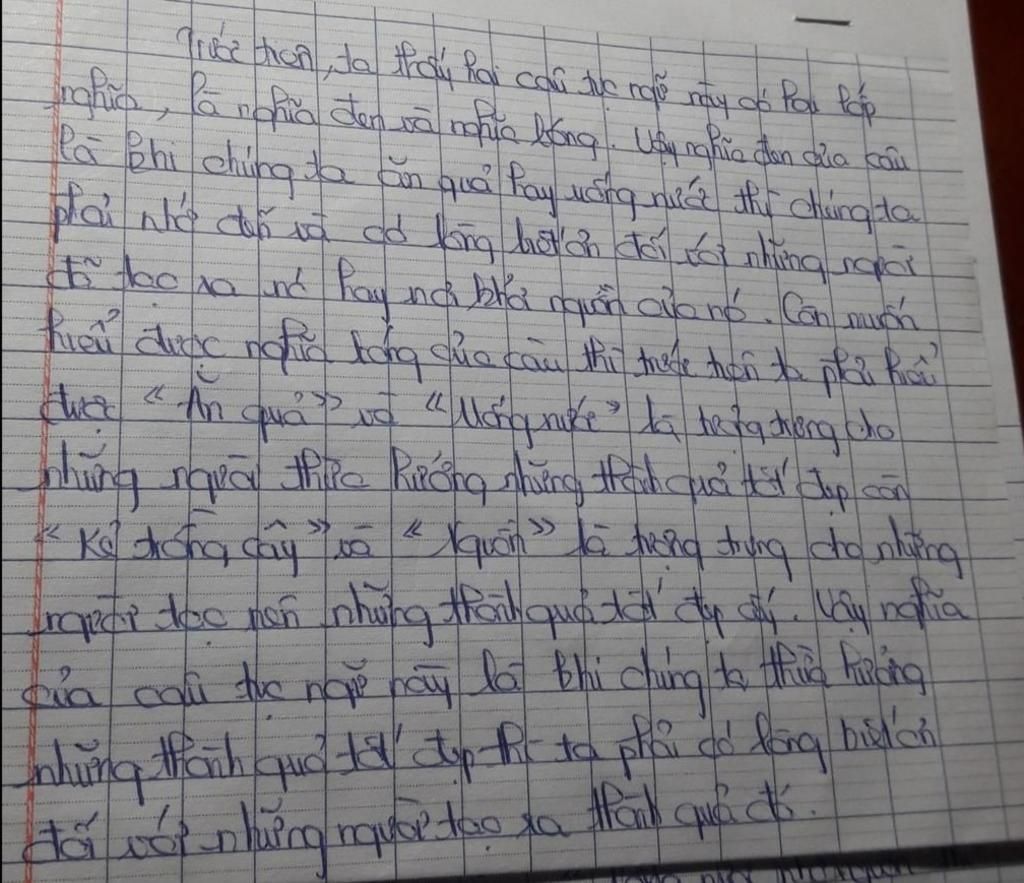 Trước tiên, ta thấy hai câu tục ngữ này có hai lớp
nghĩa, là nghĩa đen và nghĩa bóng. Vậy nghĩa đen của câu
là khi chúng ta ăn quả hay uống nước thì chúng ta
phải nhớ đến và có lòng biết ơn đối với những người
đã tạo ra nó hay nơi khởi nguồn của nó. Còn muốn
hiểu được nghĩa bóng của câu thì trước tiên ta phải hiểu
được "Ăn quả" và "Uống nước" là tượng trưng cho
những người thừa hưởng những thành quả tốt đẹp còn
"Kẻ trồng cây" và "Nguồn" là tượng trưng cho những
người tạo nên những thành quả tốt đẹp ấy. Vậy nghĩa
của câu tục ngữ này là khi chúng ta thừa hưởng
những thành quả tốt đẹp thì ta phải có lòng biết ơn
đối với những người tạo ra thành quả đó.